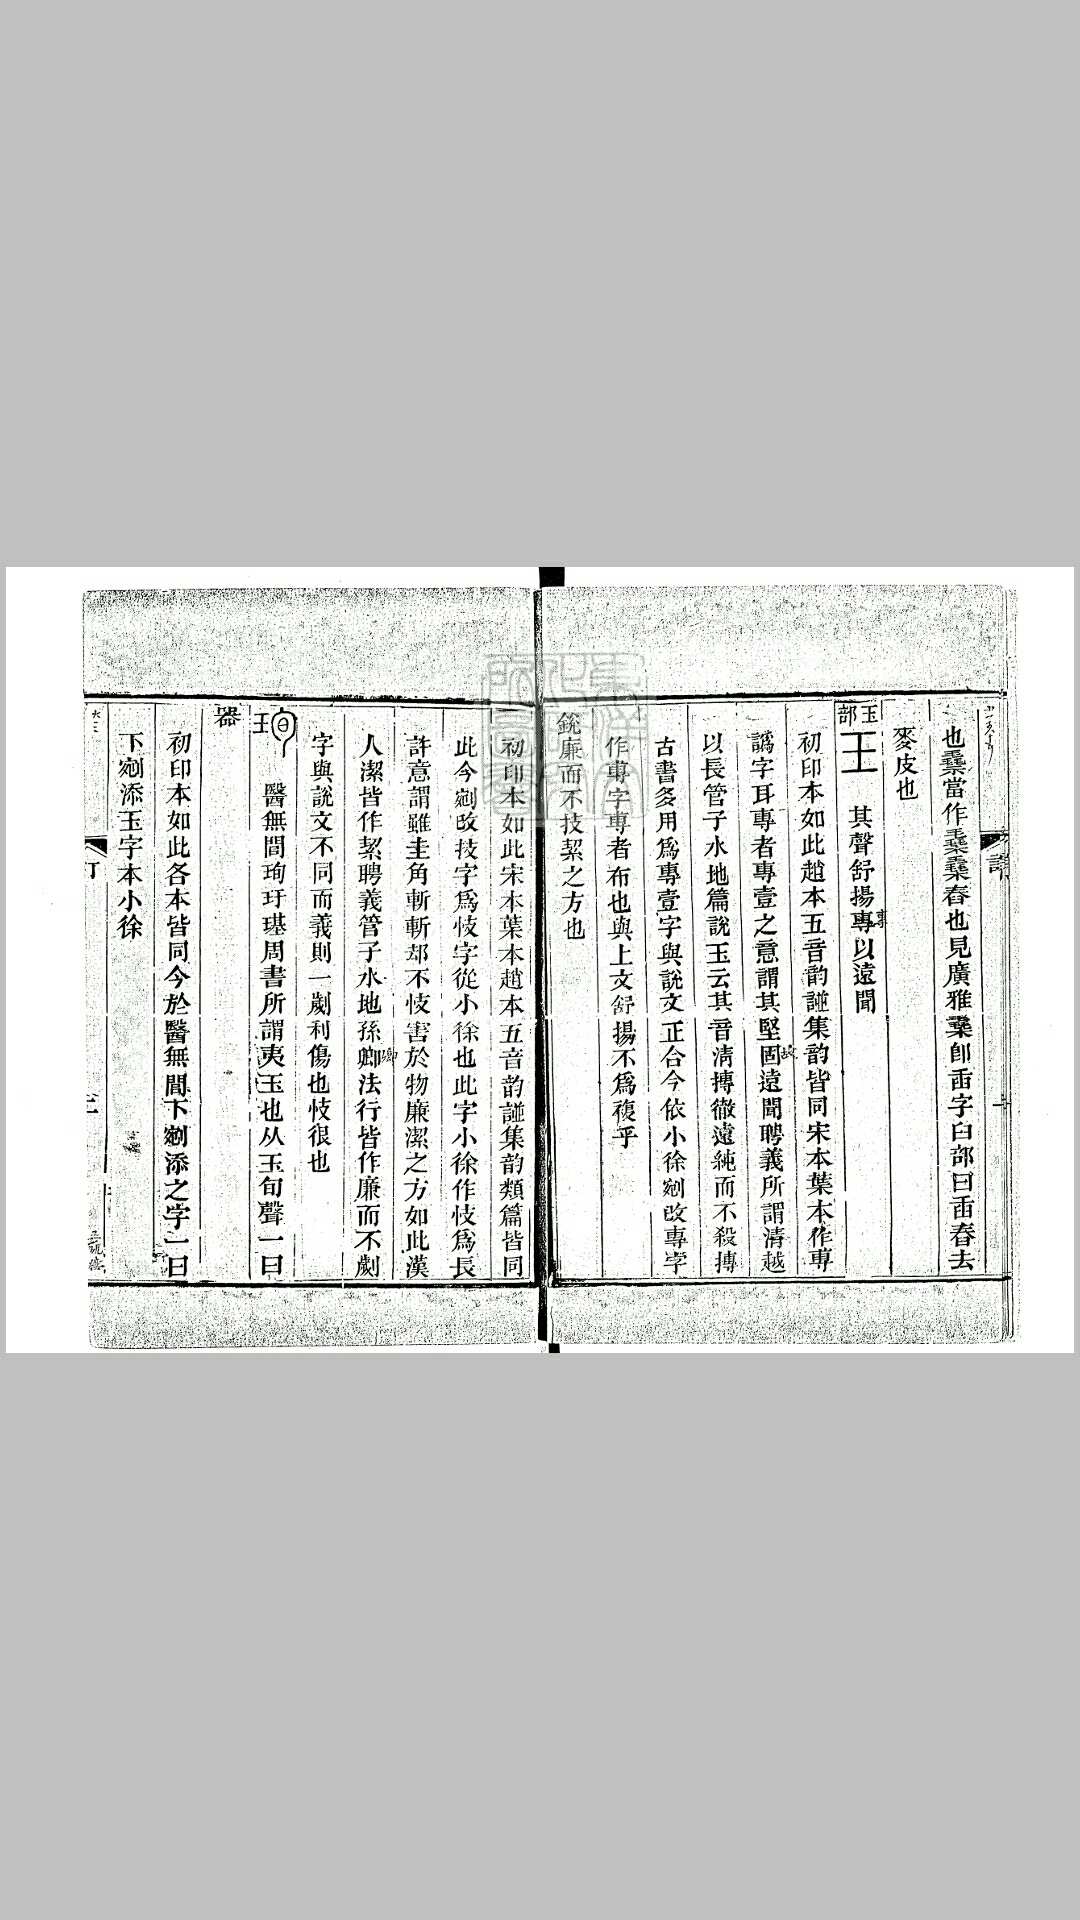 也毇當作毇毇舂也見廣雅毇卽臿字臼部曰臿舂去
麥皮也
玉部
王　其聲舒揚專以遠聞
初印本如此趙本五音韵譜集韵皆同宋本葉本作專
譌字耳專者專壹之意謂其堅固遠聞聘義所謂清越
以長管子水地篇說玉云其音清搏徹遠純而不殺搏
古書多用爲專壹字與說文正合今依小徐剜改專字
作尃字尃者布也與上文舒揚不爲複乎
銳廉而不技絜之方也
初印本如此宋本葉本趙本五音韵譜集韵類篇皆同
此今剜改技字爲忮字從小徐也此字小徐作忮爲長
許意謂雖圭角斬斬却不忮害於物廉潔之方如此漢
人潔皆作絜聘義管子水地孫卿法行皆作廉而不劌
字與說文不同而義則一劌利傷也忮很也
醫無閭珣玗璂周書所謂夷玉也从玉旬聲一曰
器
初印本如此各本皆同今於醫無閭下剜添之字一曰
下剜添玉字本小徐